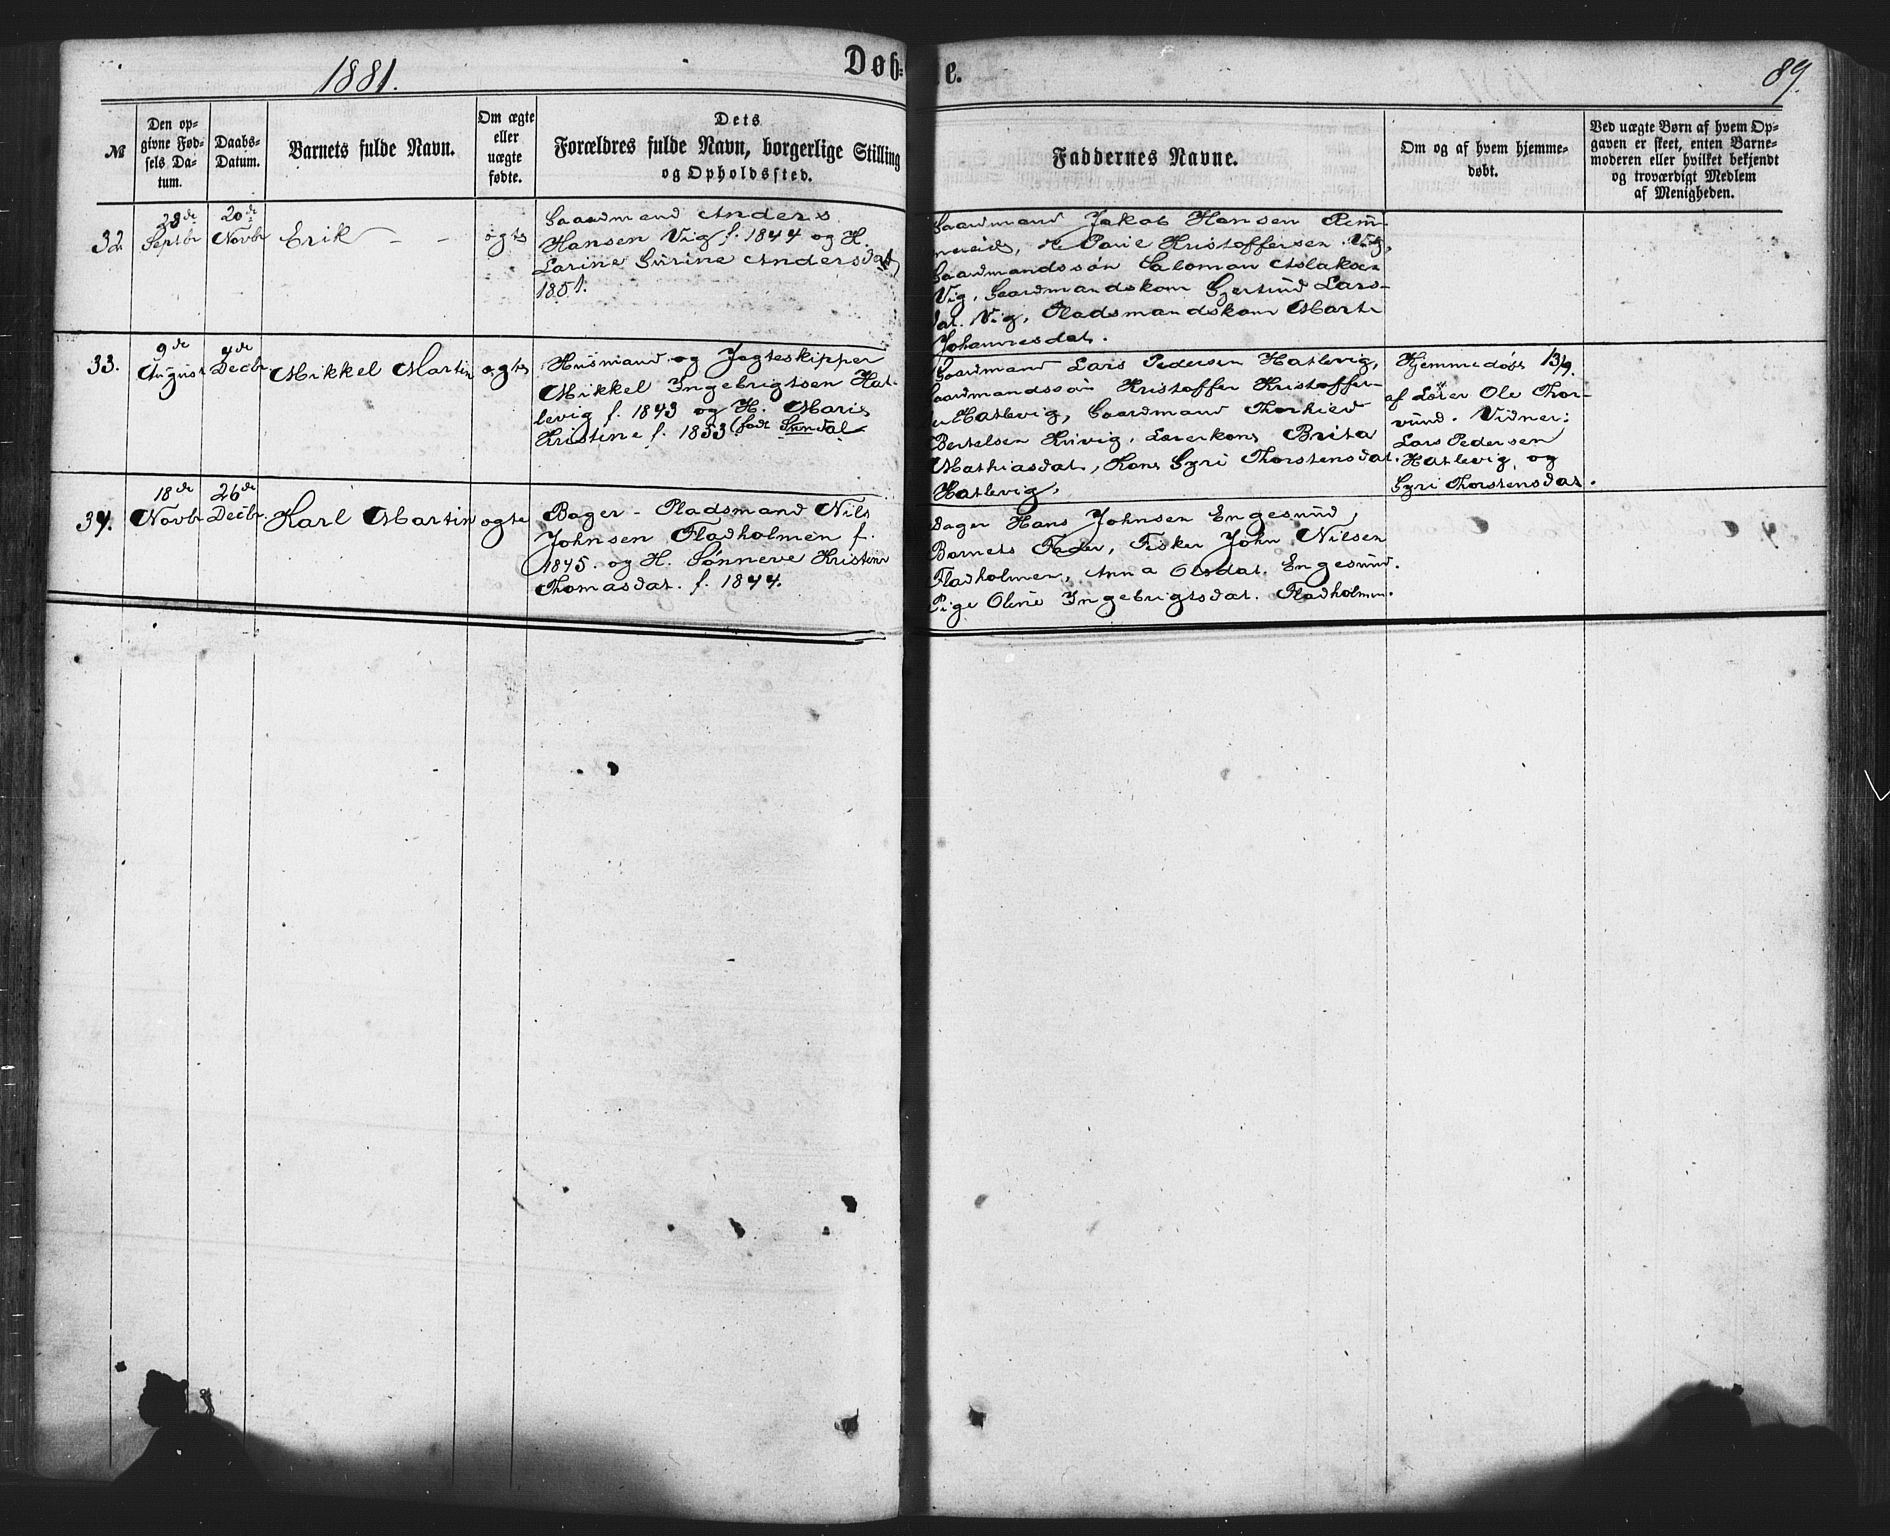 1881.
Døbte.
89.
№
Den op-
givne Fød-
sels Da-
tum.
Daabs-
Datum.
Barnets fulde Navn.
Om ægte
eller
uægte
fødte.
Dets
Forældres fulde Navn, borgerlige Stilling
og Opholdssted.
Faddernes Navne.
Om og af hvem hjemme-
døbt.
Ved uægte Børn af hvem Op-
gaven er skeet, enten Barne-
moderen eller hvilket bekjendt
og troværdigt Medlem
af Menigheden.
32.
28de
Septbr
20de
Novbr
Erik
ægte
Gaardmand Anders
Hansen Vig f. 1844 og H.
Larine Surine Andersdat
1851.
Gaardmand Jakob Hansen Rem-
mereid, do Povel Kristoffersen Vig,
Gaardmandssøn Saloman Aslaksen
Vig, Gaardmandskone Gjertrud Lars-
dat. Vig, Pladsmandskone Marte
Johannesdat.
33.
9de
August
4de
Decbr
Mikkel Martin
ægte
Husmand og Jagteskipper
Mikkel Ingebrigtsen Hat-
levig f. 1843 og H. Marie
Kristine f. 1853 født Sundal
Gaardmand Lars Pedersen Hatlevig,
Gaardmandssøn Kristoffer Kristoffer-
sen Hatlevig, Gaardmand
Bertelsen Kvivig, Lærerkone Brita
Mathiasdat, Kone Gyri Thorstensdat.
Hatlevig.
Hjemmedøbt 13/9.
af Lærer Ole Thor-
vund. Vidner:
Lars Pedersen
Hatlevig, og
Gyri Thorstensdat.
34.
18de
Novbr
26de
Decbr.
Karl Martin
ægte
Bager - Pladsmand Nils
Johnsen Fladholmen f.
1845. og H. Sønneve Kristine
Thomasdat. f. 1844.
Bager Hans Johnsen Engesund,
Barnets Fader, Fisker John Nilsen
Fladholmen, Anna Olsdat. Engesund.
Pige Oline Ingebrigtsdat. Fladholmen.